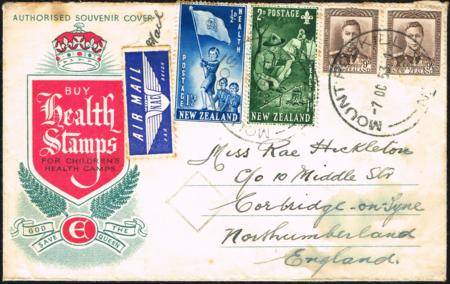 AUTHORISED SOUVENIR COVER
BUY
Health
Stamps
FOR CHILDREN'S
HEALTH CAMPS
GOD THE
SAVE QUEEN
E
Mail
AIR MAIL
PAR AVION
NAC
HEALTH
POSTAGE
NEW ZEALAND
2D POSTAGE
HEALTH
NEW ZEALAND
MOUNT
Miss Rae Heckleton
C/o 10 Middle Str
Corbridge-on-Tyne
Northumberland
England.